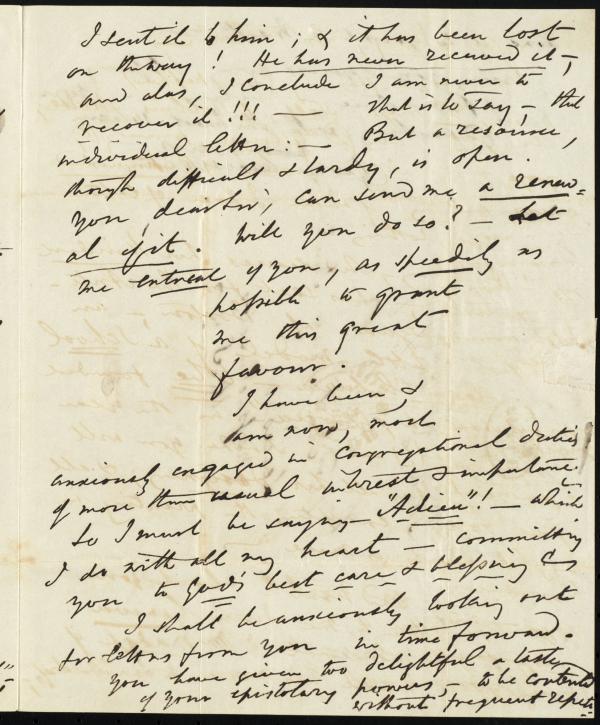 I sent it to him ; & it has been lost
on the way ! He has never received it –,
and alas, I conclude I am never to
recover it !!! — that is to say – that
individual letter : — But a resource,
though difficult & tardy, is open.
you, dear Sir, can send me a renew=
al of it. Will you do so ? — Let
me entreat of you, as speedily as
possible to grant
me this great
favour.
I have been, &
am now, most
anxiously engaged in Congregational duties
of more than usual interest & importance
So I must be saying – "Adieu" ! — which
I do with all my heart — committing
you to God's best care & blessing
I shall be anxiously looking out
for letters from you in time forward.
you have given too delightful a taste
of your epistolary powers, – to be contented
without frequent